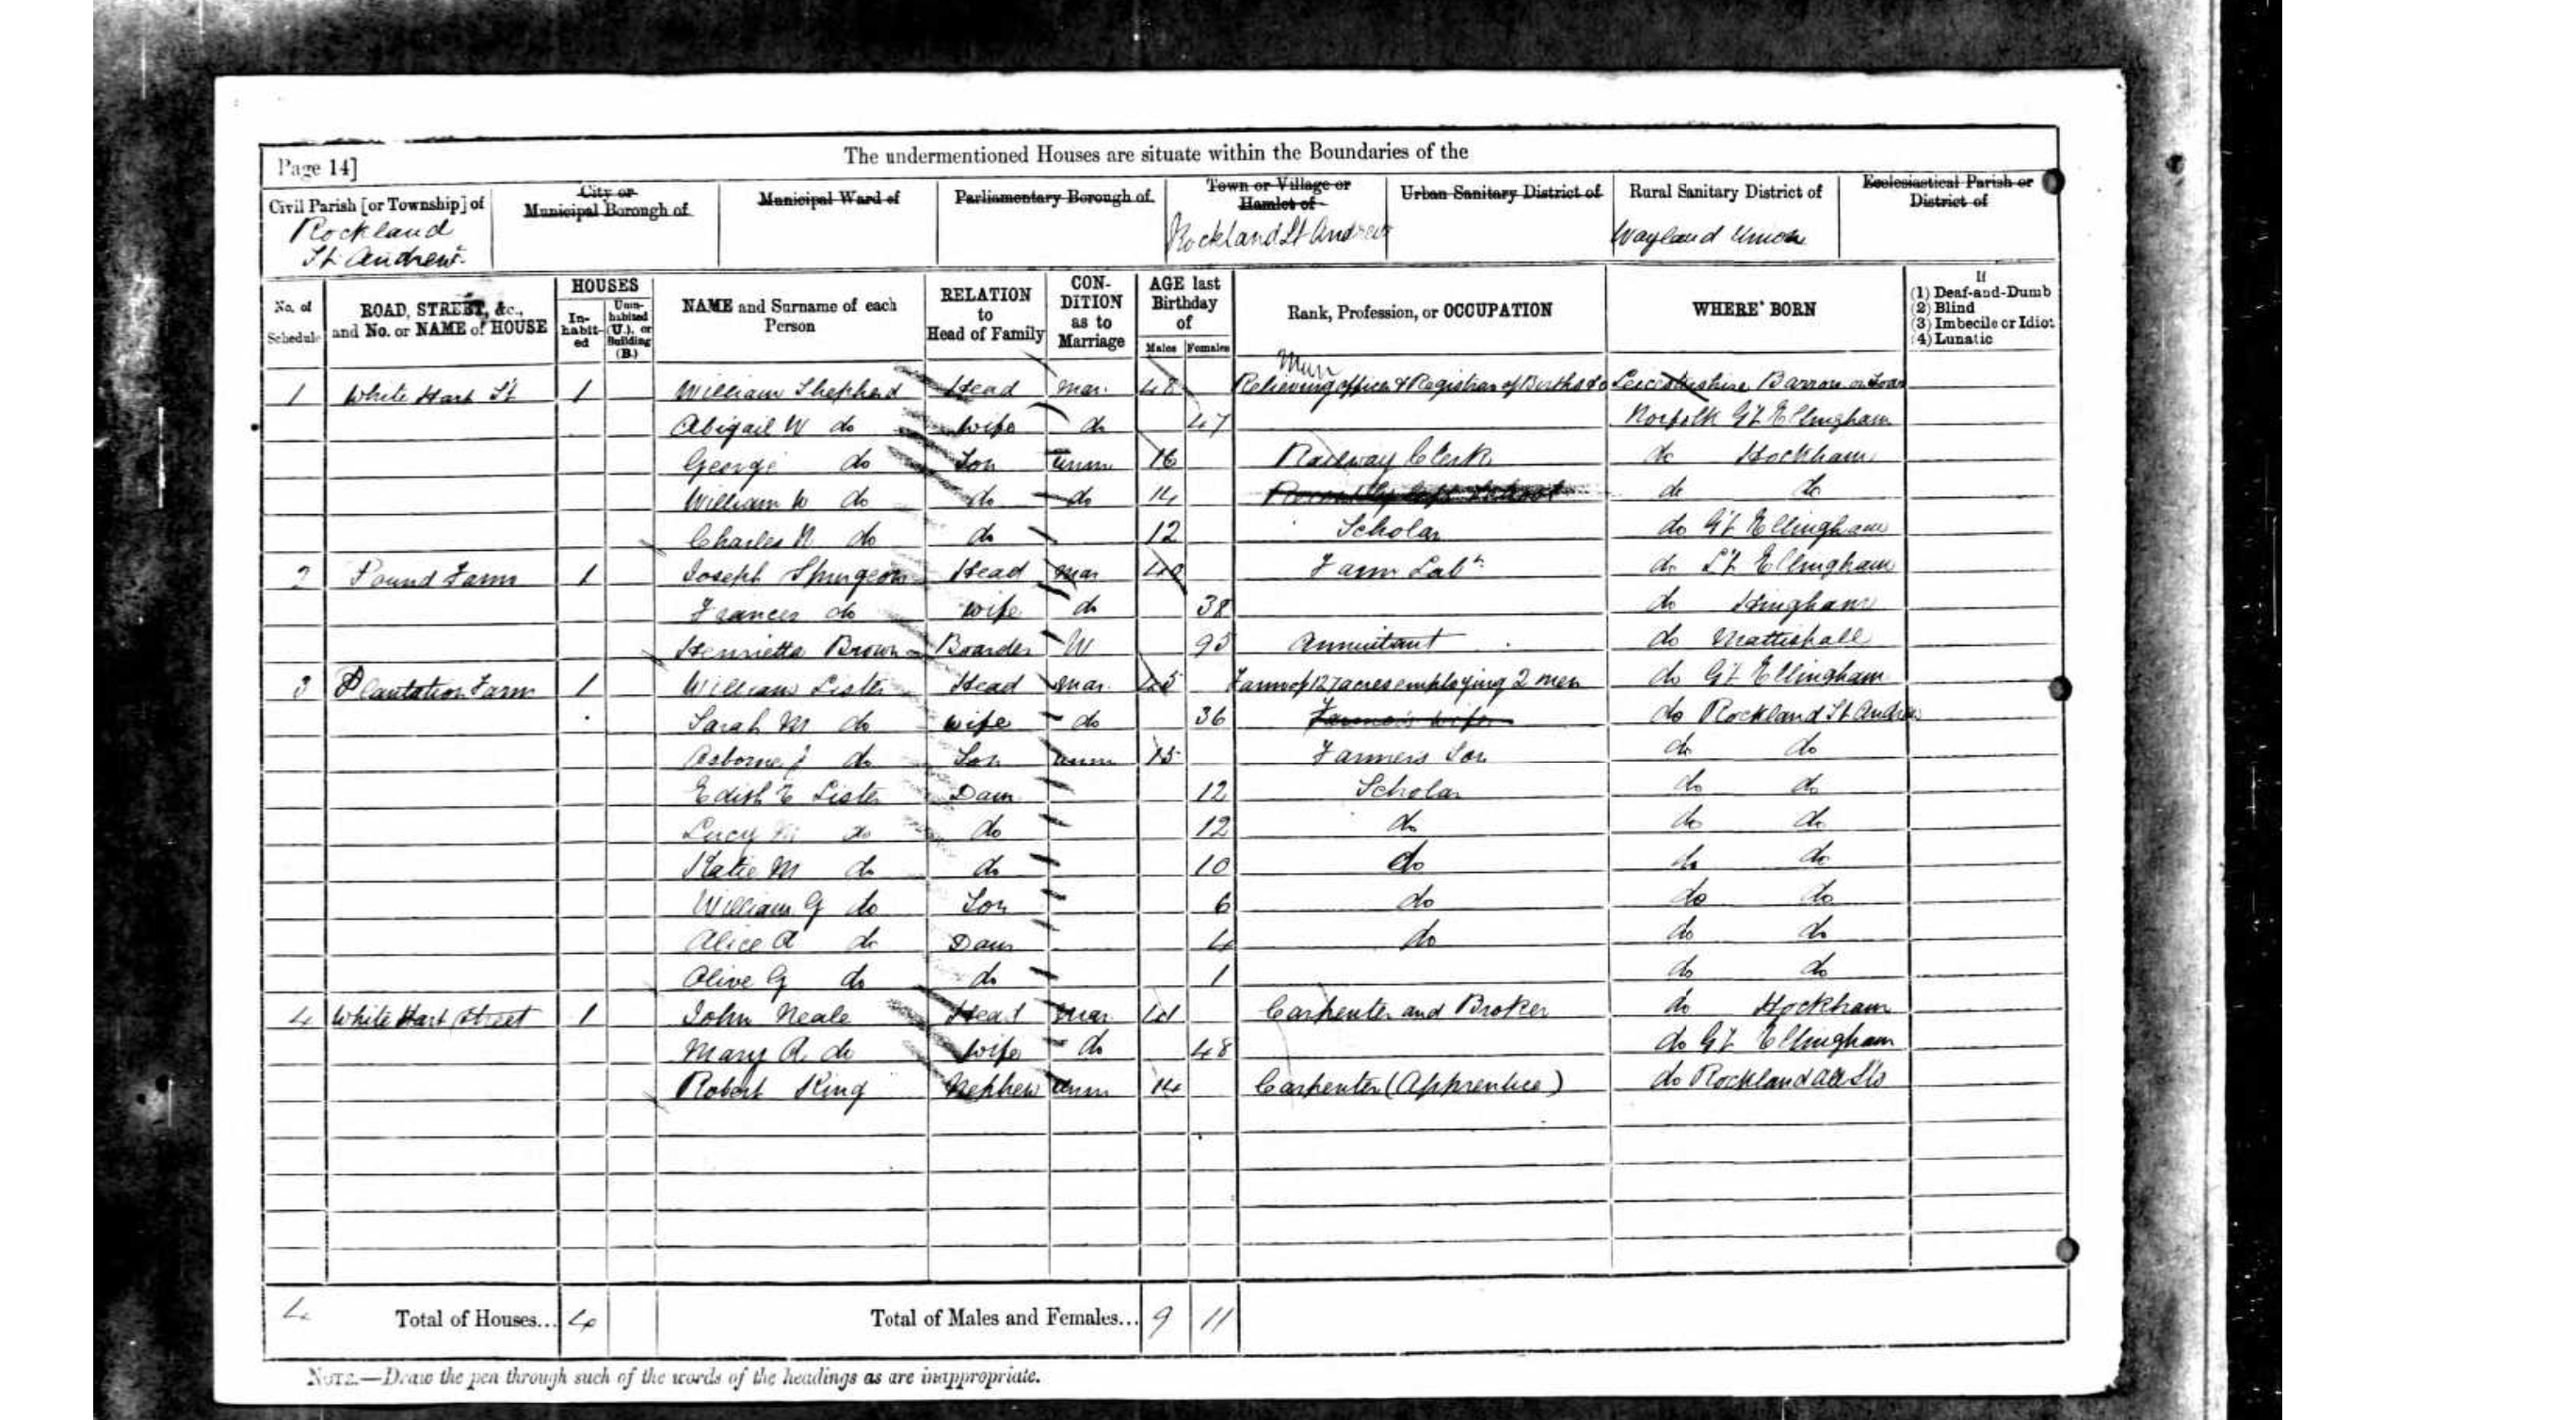 Page 14]
The undermentioned Houses are situate within the Boundaries of the
Civil Parish [or Township] of
Rockland
St. Andrew
City or
Municipal Borough of
Municipal Ward of
Parliamentary Borough of
Town or Village or
Hamlet of
Rockland St Andrew
Urban Sanitary District of
Rural Sanitary District of
Wayland Union
Ecclesiastical Parish or
District of
No. of
Schedule
ROAD, STREET, &c.,
and No. or NAME of HOUSE
HOUSES
In-
habit-
ed
Unin-
habited
(U.), or
Building
(B.)
NAME and Surname of each
Person
RELATION
to
Head of Family
CON-
DITION
as to
Marriage
AGE last
Birthday
of
Males Females
Rank, Profession, or OCCUPATION
WHERE BORN
If
(1) Deaf-and-Dumb
(2) Blind
(3) Imbecile or Idiot
(4) Lunatic
1 White Hart St 1 William Shepherd Head Mar. 48 Relieving officer & Registrar of Births &c Leicestershire Barrow on Soar
Abigail W do Wife do 47 Norfolk Gt Ellingham
George do Son Unm 16 Railway Clerk do Hockham
William W do do do 14 do do
Charles N. do do 12 Scholar do Gt Ellingham
2 Pound Farm 1 Joseph Spurgeon Head Mar 40 Farm Labr do Lt Ellingham
Frances do Wife do 38 do Hingham
Henrietta Brown Boarder W 95 Annuitant do Mattishall
3 Plantation Farm 1 William Lister Head Mar. 45 Farm of 127 acres employing 2 men do Gt Ellingham
Sarah M do Wife do 36 Farmer's wife do Rockland St Andrew
Osborne J do Son Unm 15 Farmers Son do do
Edith E Lister Daur 12 Scholar do do
Lucy M do do 12 do do do
Katie M do do 10 do do do
William G do Son 6 do do do
Alice A do Daur 4 do do do
Olive G do do 1 do do
4 White Hart Street 1 John Neale Head Mar 41 Carpenter and Broker do Hockham
Mary A. do Wife do 48 do Gt Ellingham
Robert King Nephew Unm 14 Carpenter (Apprentice) do Rockland All Sts
4 Total of Houses... 4 Total of Males and Females... 9 11
NOTE.—Draw the pen through such of the words of the headings as are inappropriate.